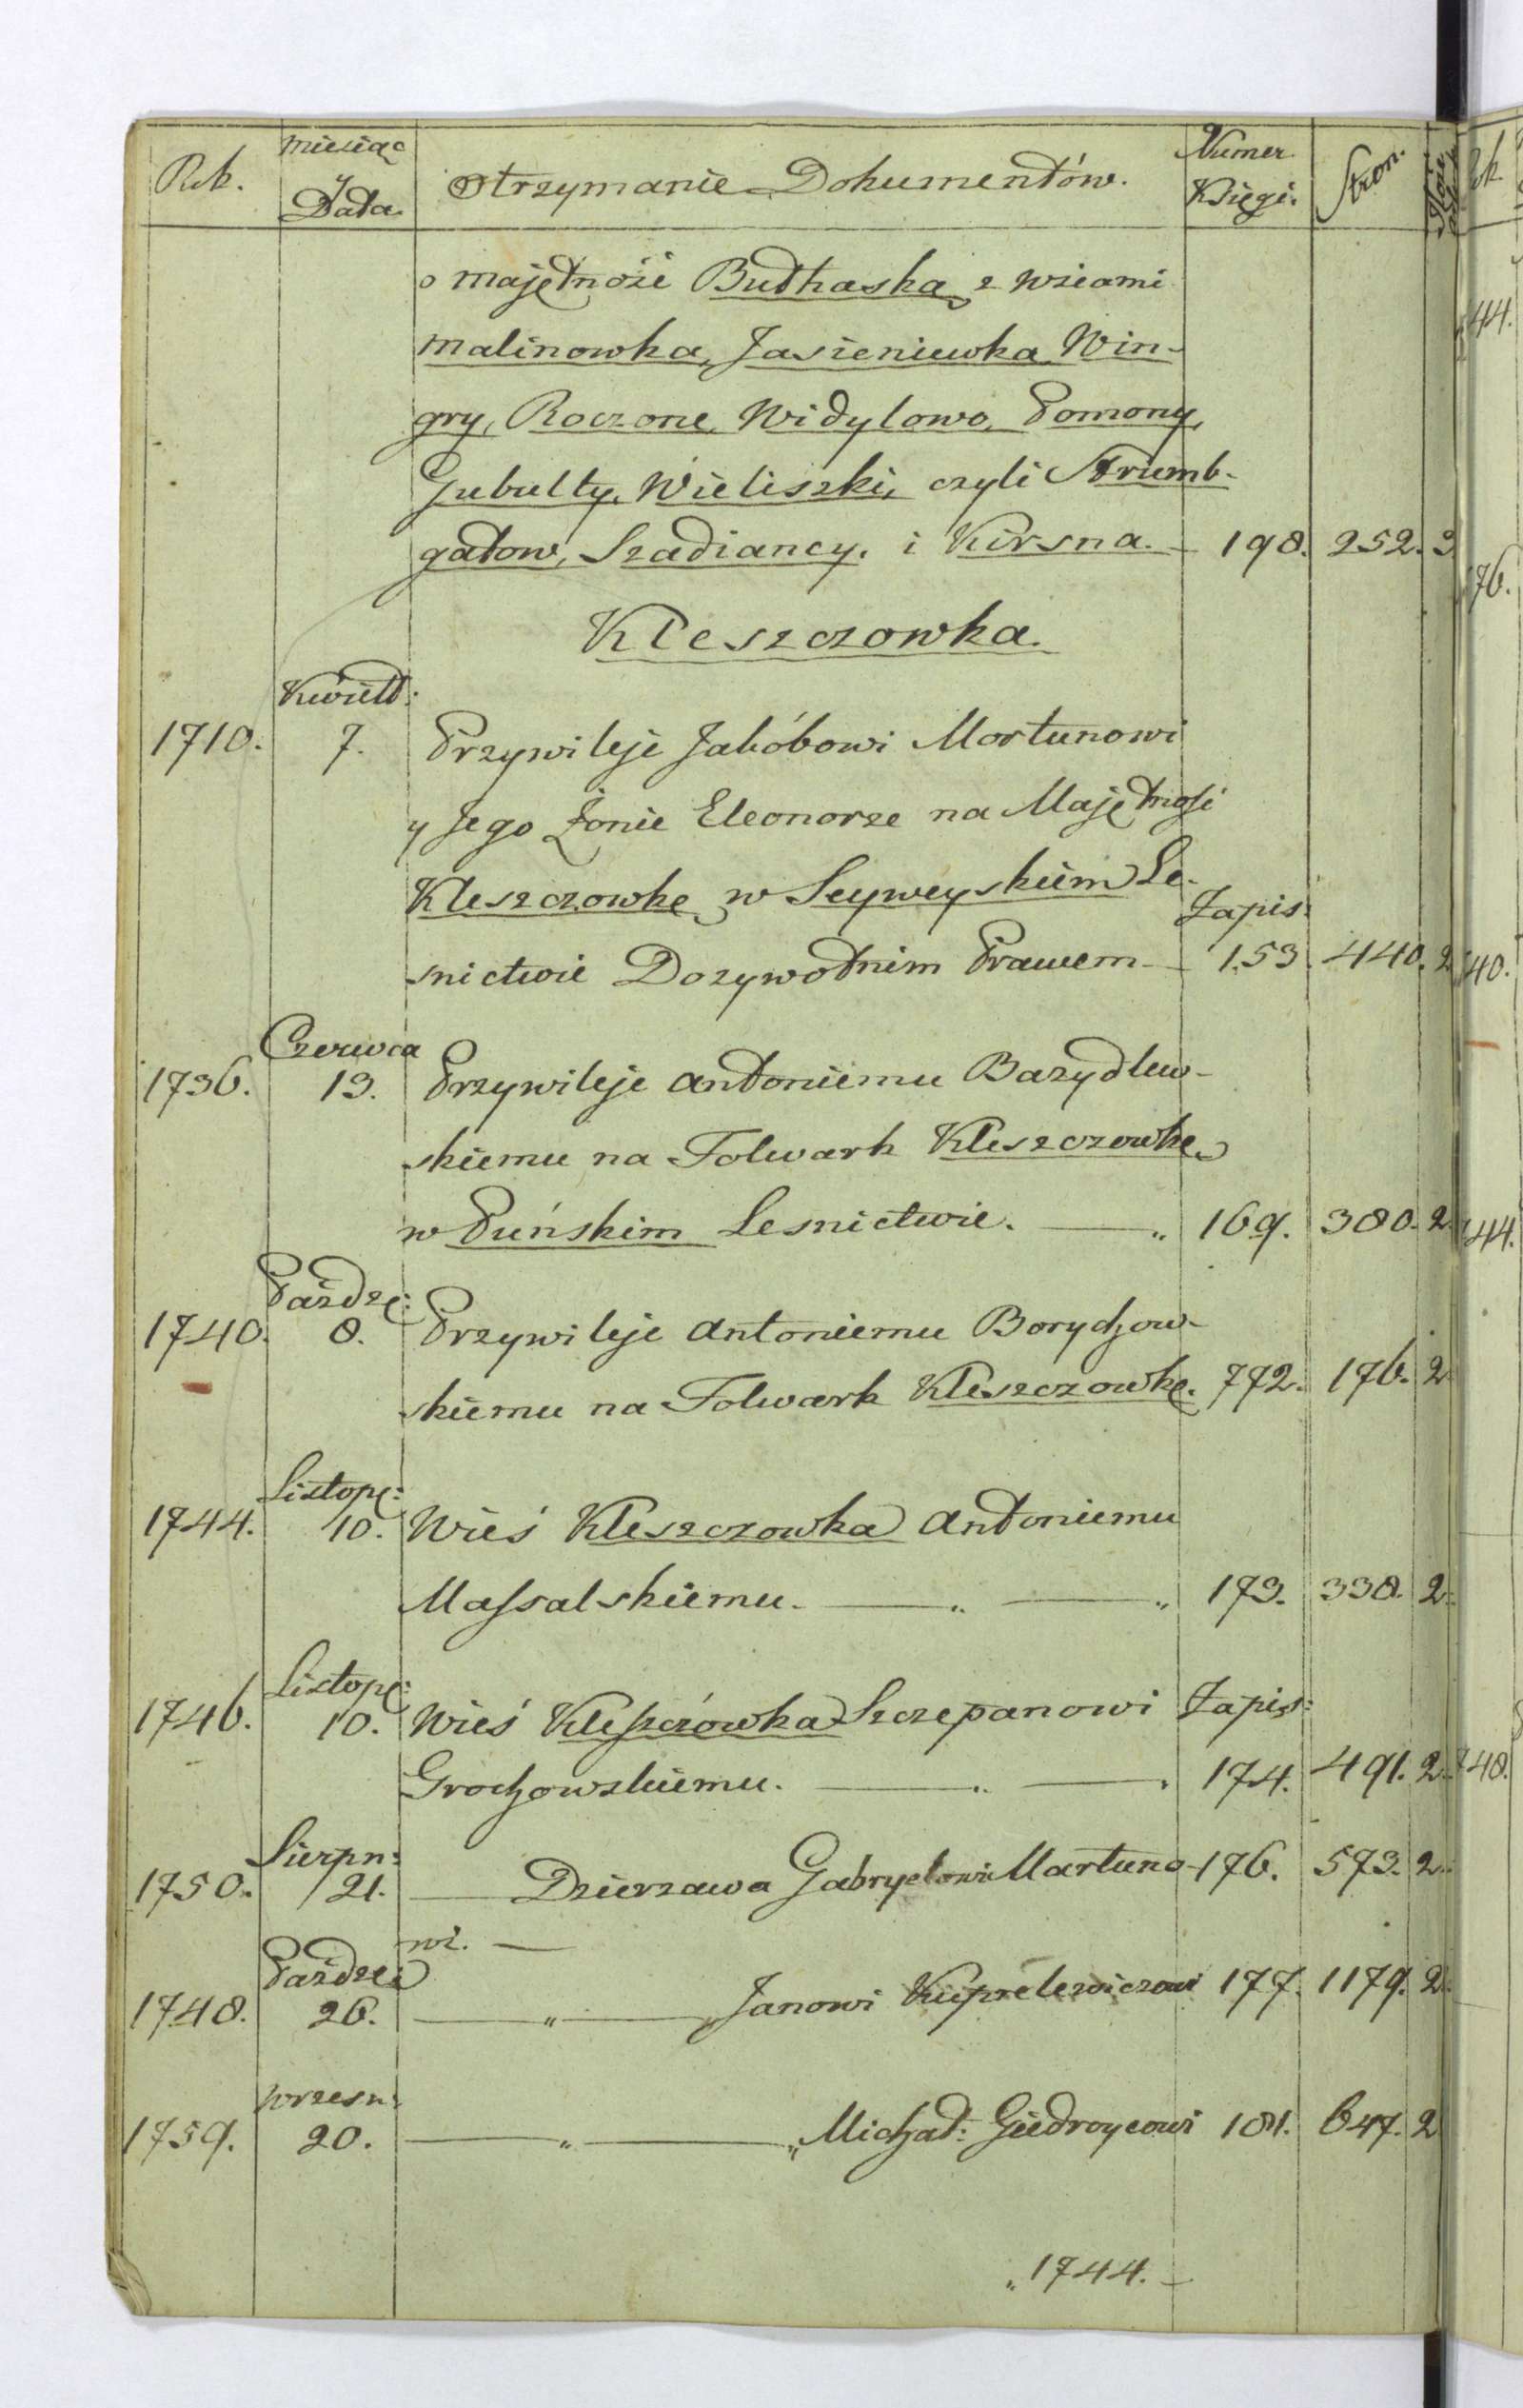 Rok. Miesiąc y Data. Otrzymanie Dokumentów. Numer Księgi. Stron.
o majętnośi Budkaska z wsiami
malinowka, Jasieniewka Win-
gry, Roczone, Widylowo, Pomony,
Gubulty, Wieliszki, czyli Strumb-
gałow, Szadiancy. i Kirsna. 198. 252. 3
Kleszczowka.
Kwiett:
1710. 7. Przywileje Jakóbowi Mortunowi
y Jego Żonie Eleonorze na Majętnośi
Kleszczowkę w Seyweyskim Le-
Zapis:
snictwie Dozywotnim Prawem 153. 440. 2
Czerwca
1736. 13. Przywileje Antoniemu Bazydlew-
skiemu na Folwark Kleszczowkę
w Puńskim Lesnictwie. 169. 380. 2
Paźdze:
1740. 8. Przywileje Antoniemu Borychow-
skiemu na Folwark Kleszczowkę. 772. 176. 2
Listop:
1744. 10. Wieś Kleszczowka Antoniemu
Massalskiemu. 173. 338. 2
Listop:
1746. 10. Wieś Kleszczówka Szczepanowi Zapis:
Grochowskiemu. 174. 491. 2
Sierpn:
1750. 21. Dzierzawa Gabryelowi Martuno- 176. 573. 2
wi.
Paźdze:
1748. 26. " Janowi Kuprelewiczowi 177. 1179. 2
Wrzesn:
1759. 20. " Michał: Giedroycowi 181. 647. 2
" 1744.